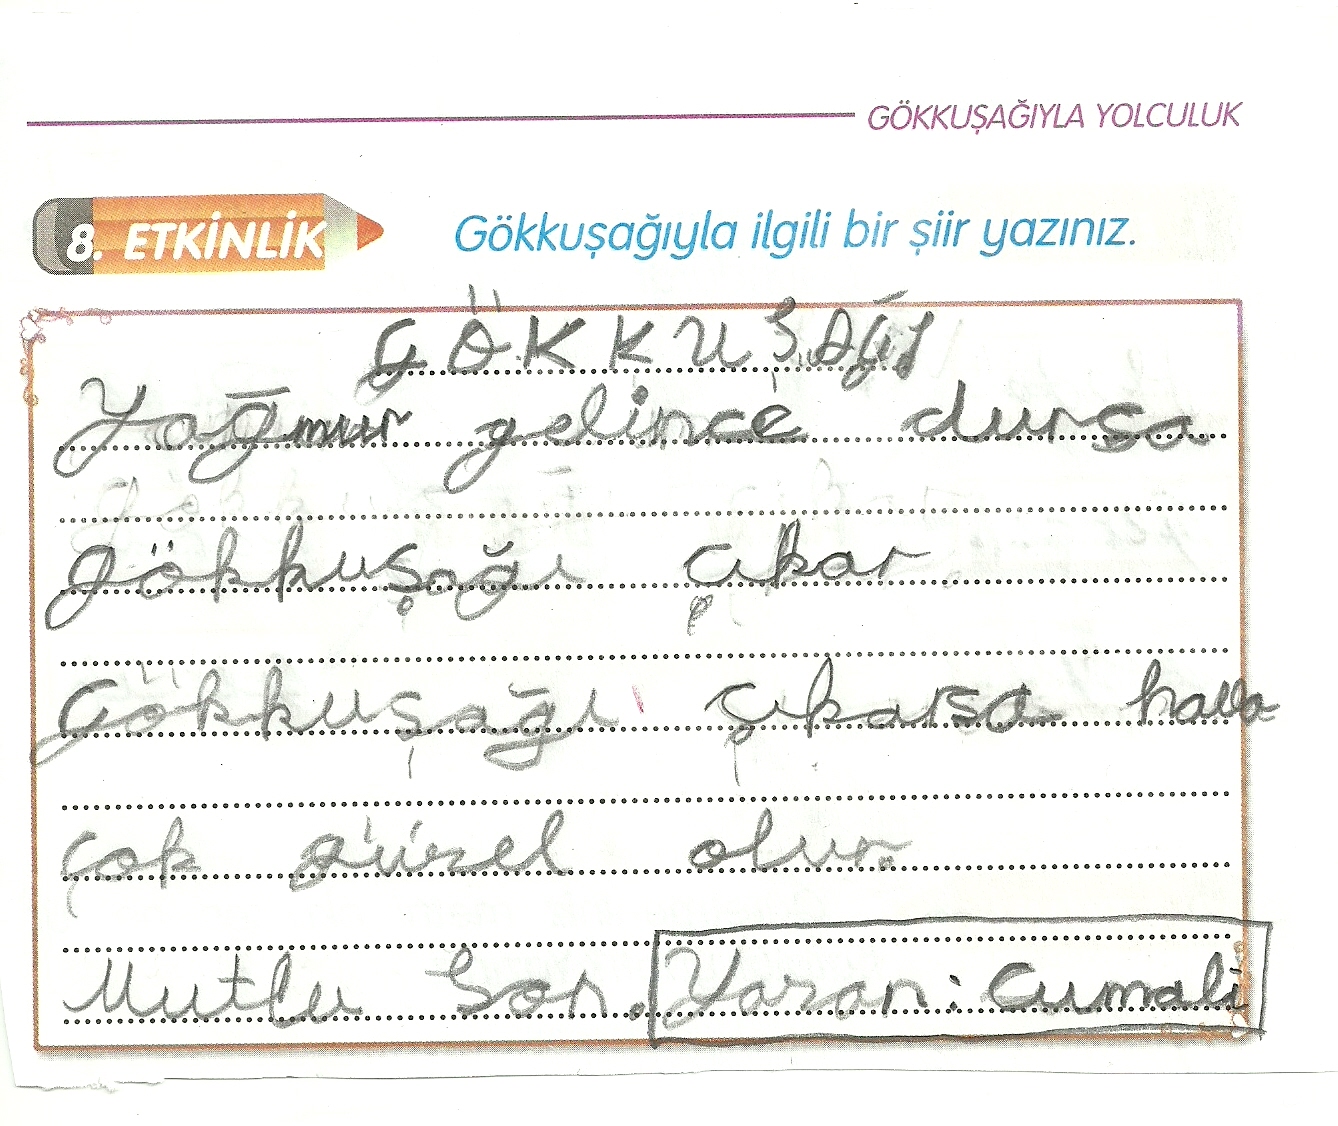 GÖKKUŞAĞIYLA YOLCULUK
8. ETKİNLİK
Gökkuşağıyla ilgili bir şiir yazınız.
GÖKKUŞAĞI
Yağmur gelince dursa
gökkuşağı çıkar
Gökkuşağı çıkarsa hava
çok güzel olur.
Mutlu Son. Yazan: Cumali